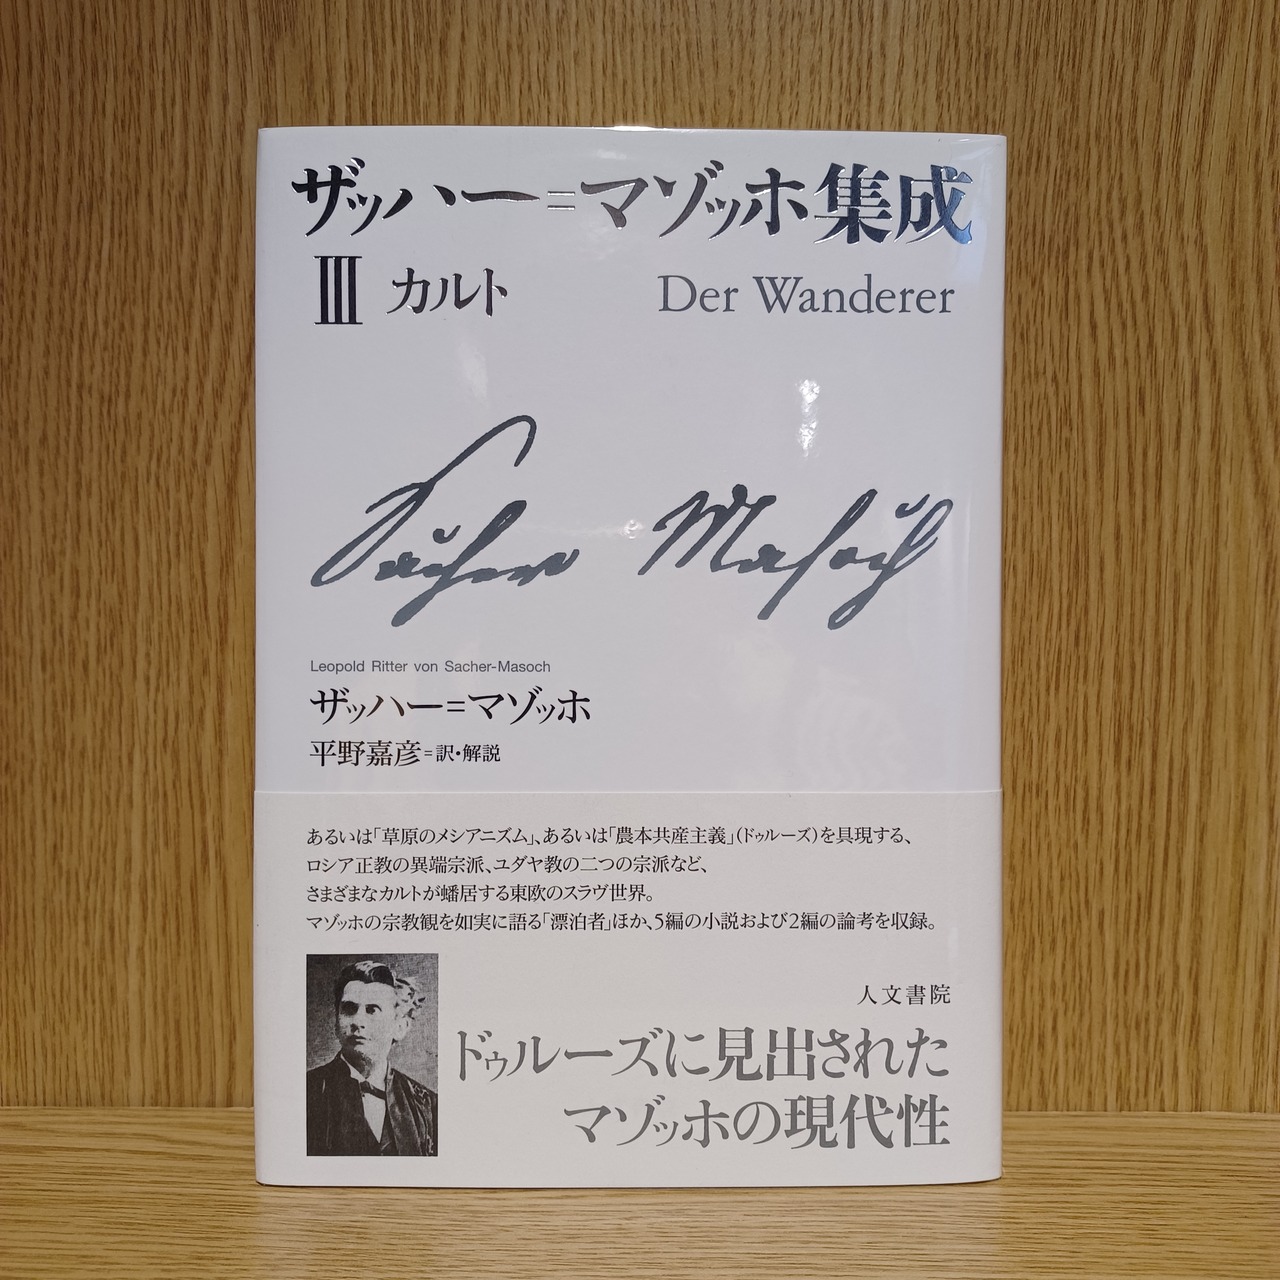 ザッハー=マゾッホ集成
Ⅲ カルト Der Wanderer
Sacher Masoch
Leopold Ritter von Sacher-Masoch
ザッハー=マゾッホ
平野嘉彦=訳・解説
あるいは「草原のメシアニズム」、あるいは「農本共産主義」(ドゥルーズ)を具現する、
ロシア正教の異端宗派、ユダヤ教の二つの宗派など、
さまざまなカルトが蟠居する東欧のスラヴ世界。
マゾッホの宗教観を如実に語る「漂泊者」ほか、5編の小説および2編の論考を収録。
人文書院
ドゥルーズに見出された
マゾッホの現代性